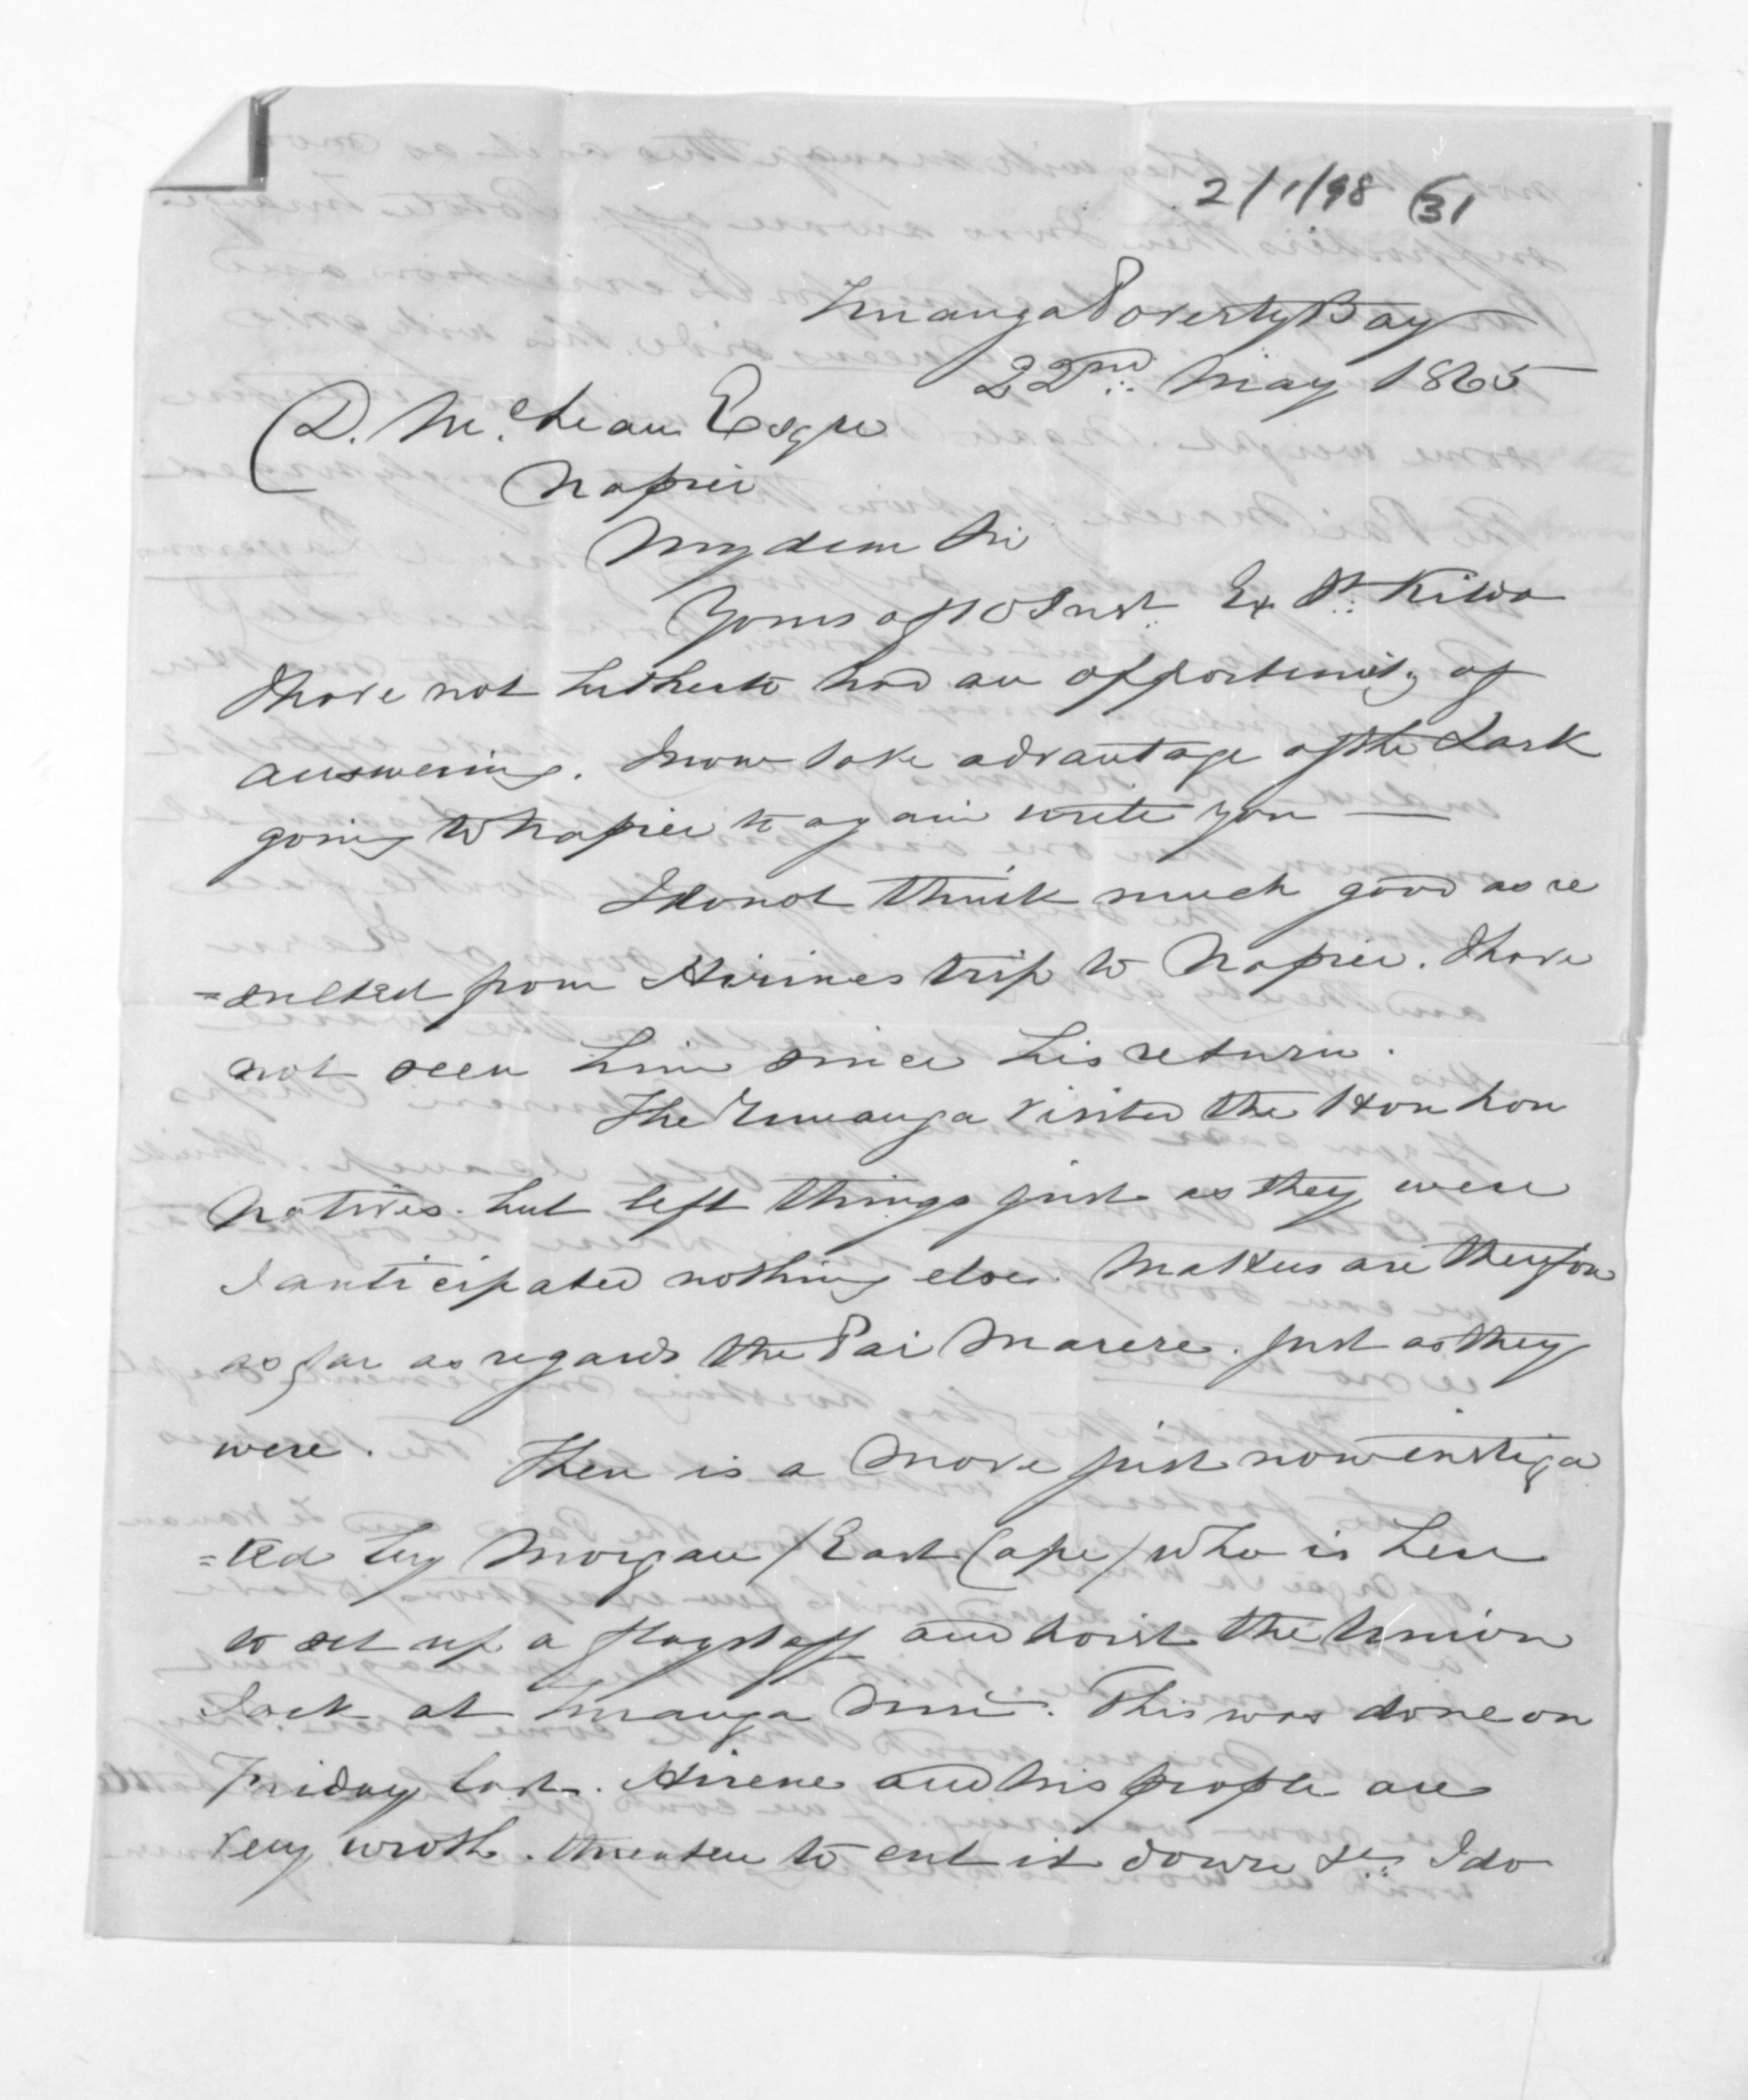 2/1/98 (31
Turanga Poverty Bay
22nd.. May 1865
D. McLean Esqre
Napier
My dear Sir
Yours of 10 Inst. Ex St. Kilda
I have not hitherto had an opportunity of
answering. I now take advantage of the Lark
going to Napier to again write you —
I do not think much good as re
=sulted from Hirines trip to Napier. I have
not seen him since his return.
The Runanga visited the Hau hau
Natives. but left things just as they were
I anticipated nothing else. Matters are therefore
as far as regards the Pai Marere. Just as they
were. There is a move just now instiga
=ted by Morgan / East Cape / who is here
to set up a flagstaff and hoist the Union
Jack at Turanga Nui. This was done on
Friday last. Hirene and his people are
very wroth. threaten to cut it down &c. I do